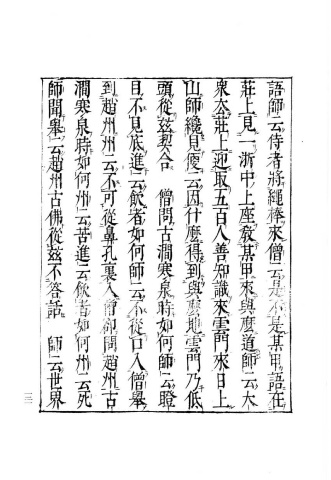 語師云侍者將繩棒來僧云是不是某甲語在
莊上見一浙中上座教某甲來與麼道師云大
衆去莊上迎取五百人善知識來雲門來日上
山師纔見便云因什麼得到與麼地雲門乃低
頭從玆契合　僧問古澗寒泉時如何師云瞪
目不見底進云飲者如何師云不從口入僧舉
到趙州州云不可從鼻孔裏入僧却問趙州古
澗寒泉時如何州云苦進云飲者如何州云死
師聞舉云趙州古佛從玆不答話　師云世界